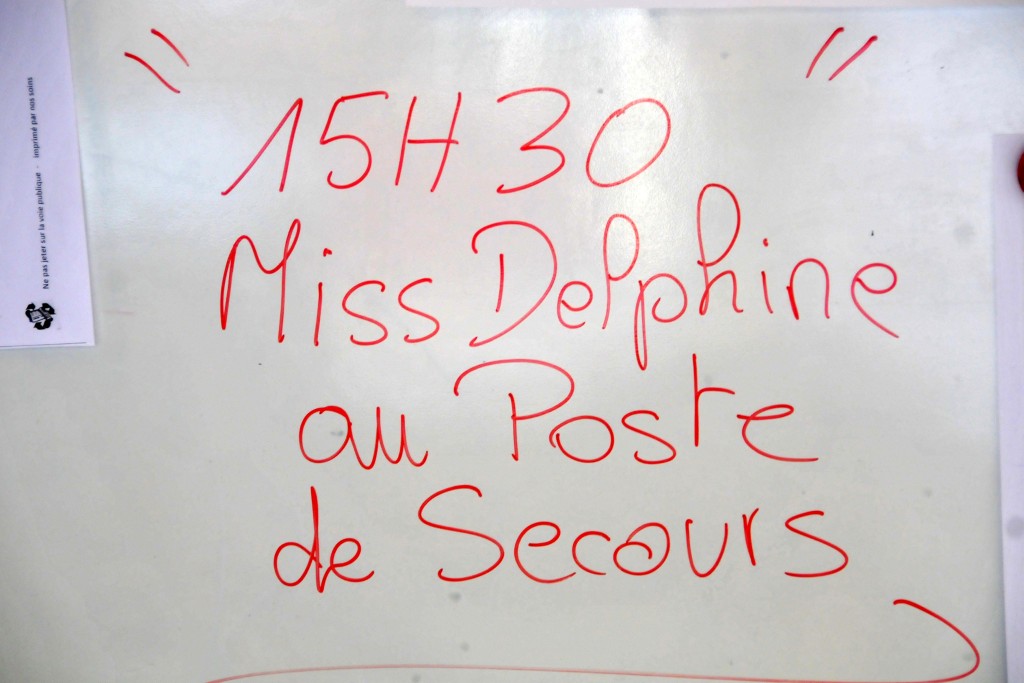 Ne pas jeter sur la voie publique - imprimé par nos soins
" "
15H30
Miss Delphine
au Poste
de Secours